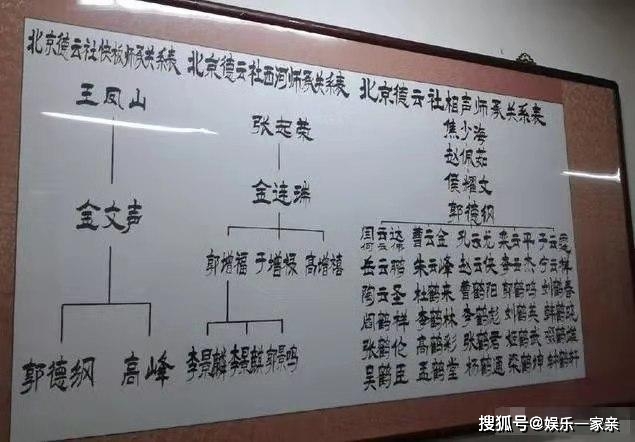 北京德云社快板师承关系表
王凤山
金文声
郭德纲 高峰
北京德云社西河师承关系表
张志荣
金连瑞
郭增福 于增禄 高增禧
李景麟 李景麟 郭景鸣
北京德云社相声师承关系表
焦少海
赵佩茹
侯耀文
郭德纲
云达 曹云金 孔云龙 栾云平 于云霆
岳云鹏 朱云峰 赵云侠 李云杰 宁云祥
陶云圣 杜鹤来 曹鹤阳 郭鹤鸣 刘鹤春
阎鹤祥 李鹤林 李鹤彪 刘鹤英 韩鹤晓
张鹤伦 高鹤彩 张鹤君 姬鹤武 鹤雄
吴鹤臣 孟鹤堂 杨鹤通 梁鹤坤 鹤轩
搜狐号@娱乐一家亲